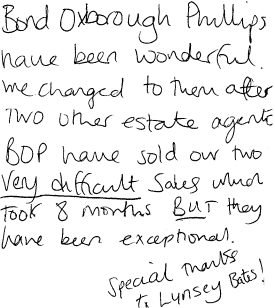 Bond Oxborough Phillips
have been wonderful.
We changed to them after
two other estate agents
BOP have sold our two
very difficult sales which
took 8 months BUT they
have been exceptional.
Special thanks
to Lynsey Bates!